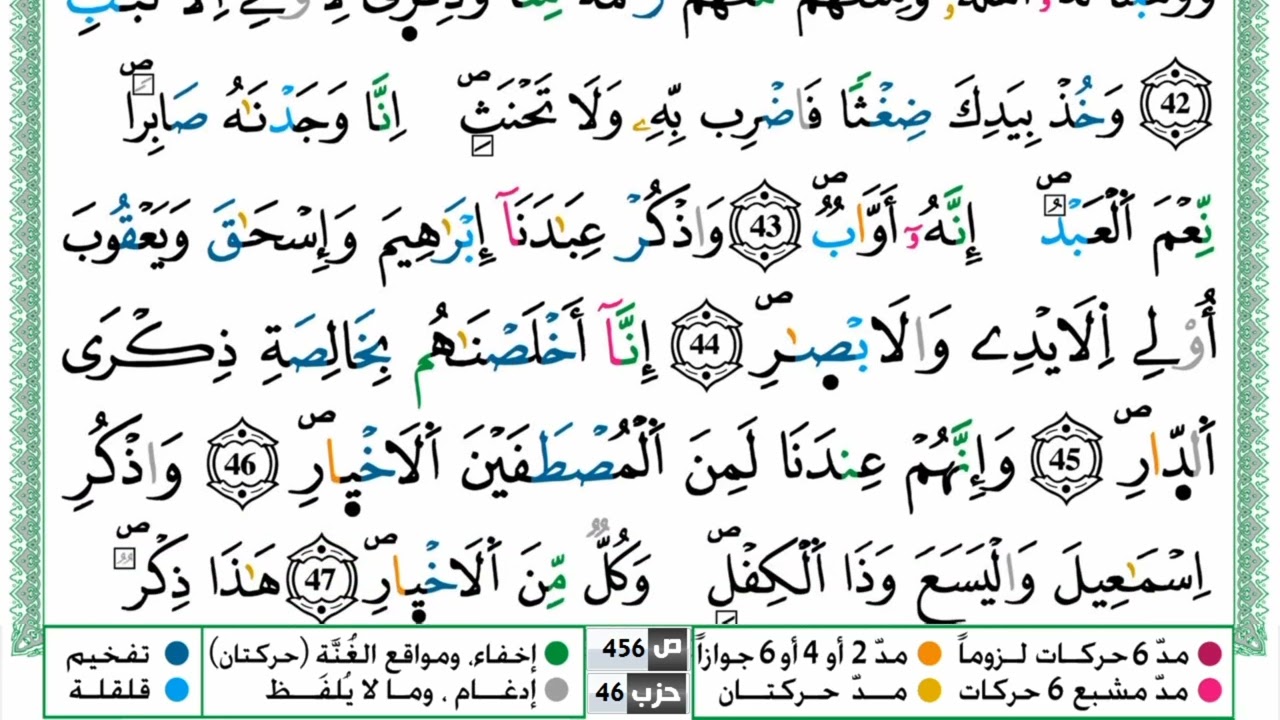 لِأُوْلِے اِ۬لَالْبَٰبِ
(42) وَخُذْ بِيَدِكَ ضِغْثاٗ فَاضْرِب بِّهِۦ وَلَا تَحْنَثِۖ اِنَّا وَجَدْنَٰهُ صَابِراٗۖ
نِّعْمَ اَ۬لْعَبْدُۖ إِنَّهُۥٓ أَوَّابٞۖ (43) وَاذْكُرْ عِبَٰدَنَآ إِبْرَٰهِيمَ وَإِسْحَٰقَ وَيَعْقُوبَ
أُوْلِے اِ۬لَايْدِے وَالَابْصٰ۪رِۖ (44) إِنَّآ أَخْلَصْنَٰهُم بِخَالِصَةِ ذِكْرَى
اَ۬لدّ۪ارِۖ (45) وَإِنَّهُمْ عِندَنَا لَمِنَ اَ۬لْمُصْطَفَيْنَ اَ۬لَاخْي۪ارِۖ (46) وَاذْكُرِ
اِسْمَٰعِيلَ وَالْيَسَعَ وَذَا اَ۬لْكِفْلِۖ وَكُلّٞ مِّنَ اَ۬لَاخْي۪ارِۖ (47) هَٰذَا ذِكْرٞۖ
مدّ 6 حركات لزوماً مدّ 2 أو 4 أو 6 جوازاً ص 456 إخفاء، ومواقع الغُنَّة (حركتان) تفخيم
مدّ مشبع 6 حركات مدّ حركتان حزب 46 إدغام ، وما لا يُلفَظ قلقلة